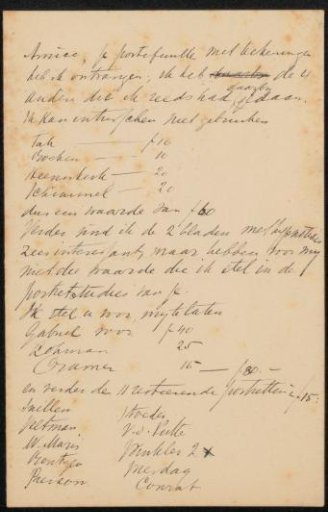 Amice, je portefeuille met tekeningen
heb ik ontvangen, ik heb de 4
anderen die ik reeds had daarbij gedaan.
Ik kan intusschen niet gebruiken
Tak — f 10
Bosken — 10
Heemskerk — 20
Schimmel — 20
dus een waarde van f 60
Verder vind ik de 2 bladen met
zeer interessant, maar hebben voor mij
niet die waarde die ik stel in de
portretstudies van je.
Ik stel u voor mij te laten
Gabriel voor f 40
Rohman 25
Cramer 15 — f 80.–
en verder de 11 resteerende portretten à f 15.
Snellen Stoeder
Veltman v.d. Velde
W. Maris Winkler 2 x
Bientzen Meerdag
Pierson Conrat